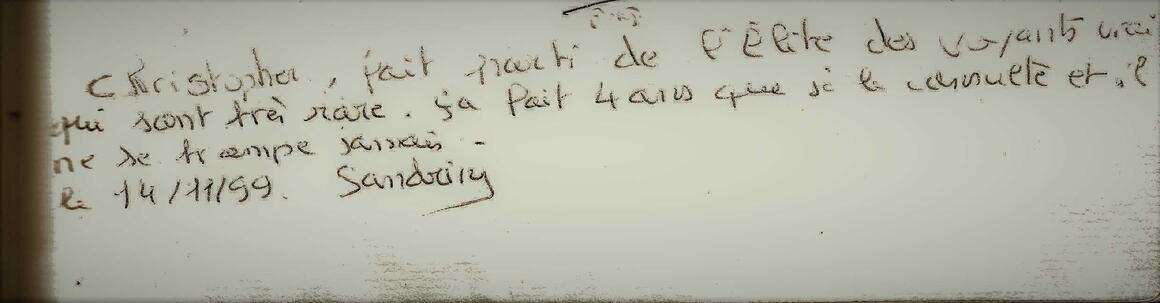 Christopher, fait parti de l'Élite des voyants vrai
qui sont trè rare. ça fait 4 ans que je le consulte et il
ne se trompe jamais -
le 14/11/99. Sandriny